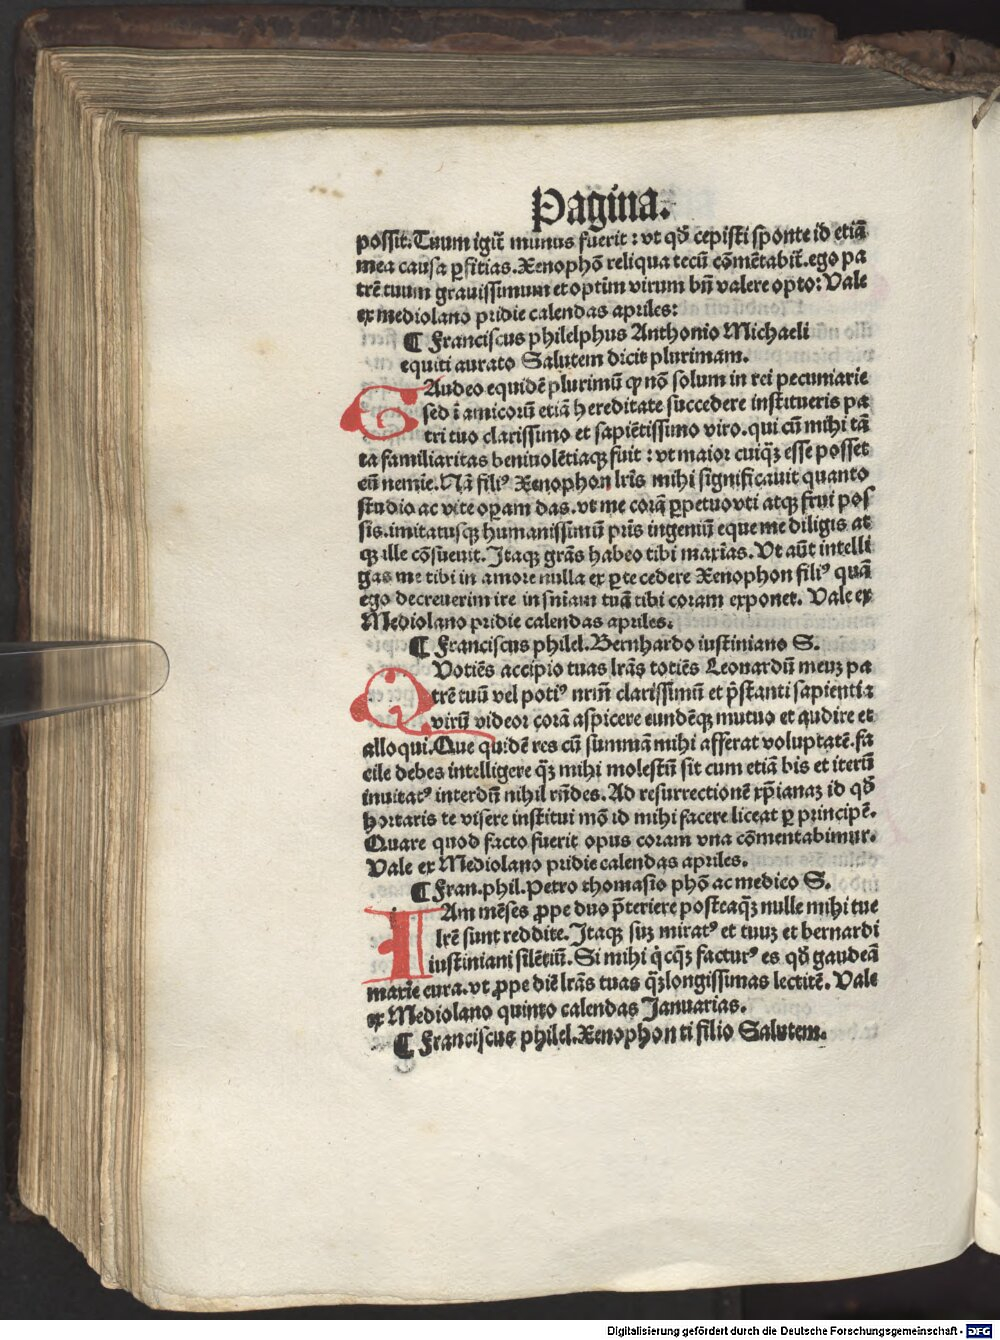 Pagina.
possit. Tuum igit̃ munus fuerit : vt qđ cepisti sponte id etiã
mea causa ꝑfitias. Xenophõ reliqua tecũ cõmẽtabit̃. ego pa
trẽ tuum grauissimum et optim virum bñ valere opto: Vale
ex mediolano pridie calendas apriles:
¶ Franciscus philelphus Anthonio Michaeli
equiti aurato Salutem dicit plurimam.
GAudeo equidẽ plurimũ ꝙ nõ solum in rei pecuniarie
sed ĩ amicorũ etiã hereditate succedere institueris pa
tri tuo clarissimo et sapiẽtissimo viro. qui cũ mihi tã
ta familiaritas beniuolẽtiaqꝫ fuit : vt maior cuiqꝫ esse posset
cũ nemie. Nã filiꝰ Xenophon lr̃is mihi significauit quanto
studio ac vite oꝑam das. vt me corã ꝑpetuo vti atqꝫ frui pos
sis. imitatusqꝫ humanissimũ pr̃is ingeniũ eque me diligis at
qꝫ ille cõsueuit. Itaqꝫ gr̃as habeo tibi maxĩas. Vt aũt intelli
gas me tibi in amore nulla ex ꝑte cedere Xenophon filiꝰ quã
ego decreuerim ire in sñiam tuã tibi coram exponet. Vale ex
Mediolano pridie calendas apriles.
¶ Franciscus philel. Bernhardo iustiniano S.
QVotiẽs accipio tuas lr̃as totiẽs Leonardũ meuꝫ pa
trẽ tuũ vel potiꝰ nr̃m clarissimũ et p̃stanti sapientia
virũ videor corã aspicere eundẽqꝫ mutuo et audire et
alloqui. Que quidẽ res cũ summã mihi afferat voluptatẽ. fa
cile debes intelligere qꝫ̃ mihi molestũ sit cum etiã bis et iterũ
inuitatꝰ interdũ nihil rñdes. Ad resurrectionẽ xp̃ianaꝫ id qđ
hortaris te visere institui mõ id mihi facere liceat ꝑ principẽ.
Quare quod facto fuerit opus coram vna cõmentabimur.
Vale ex Mediolano pridie calendas apriles.
¶ Fran. phil. Petro thomasio phõ ac medico S.
IAm mẽses ꝓpe duo p̃teriere posteaqꝫ̃ nulle mihi tue
lr̃e sunt reddite. Itaqꝫ suꝫ miratꝰ et tuuꝫ et bernardi
iustiniani silẽtiũ. Si mihi q̇cqꝫ̃ facturꝰ es qđ gaudeã
maxie cura. vt ꝓpe diẽ lr̃as tuas qꝫ̃longissimas lectitẽ. Vale
ex Mediolano quinto calendas Januarias.
¶ Franciscus philel. Xenophonti filio Salutem.
Digitalisierung gefördert durch die Deutsche Forschungsgemeinschaft - DFG